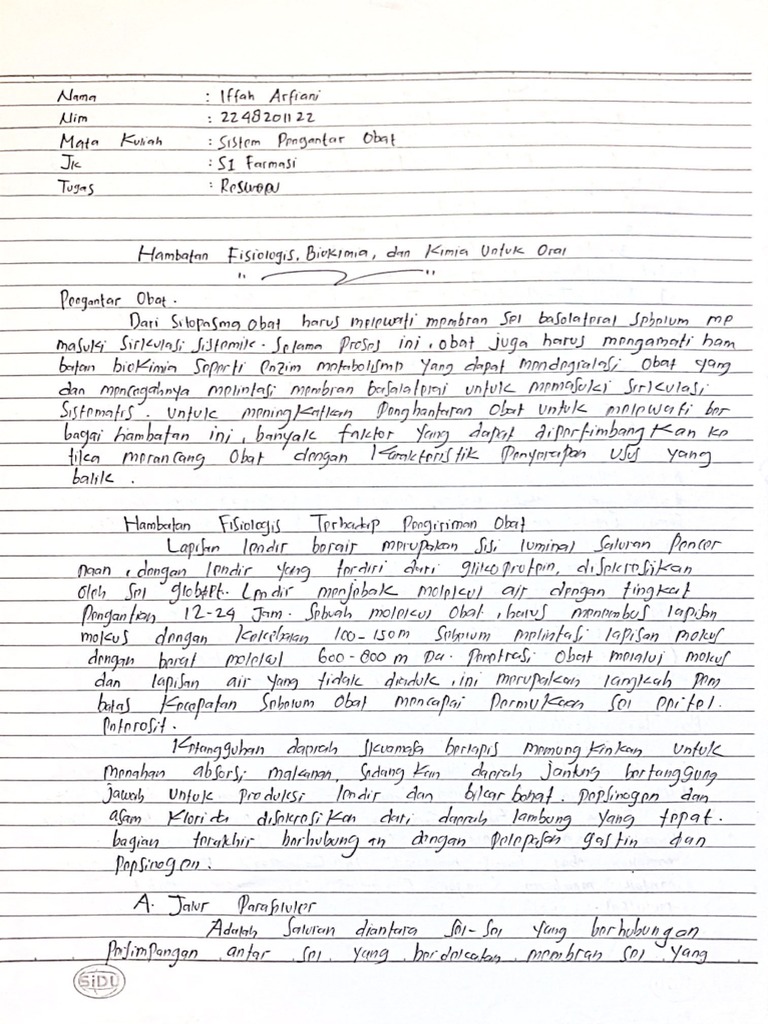 Nama : Iffah Arfiani
Nim : 2248201122
Mata Kuliah : Sistem Pengantar Obat
Jk : S1 Farmasi
Tugas : Resume
Hambatan Fisiologis, Biokimia, dan Kimia Untuk Oral
Pengantar Obat.
Dari Sitopasma obat harus melewati membran sel basolateral sebelum me
masuki sirkulasi sistemik. Selama proses ini, obat juga harus mengamati ham
batan biokimia seperti enzim metabolisme yang dapat mendegralasi obat yang
dan mencegahnya melintasi membran basalateral untuk memasuki serkulasi
Sistematis. Untuk meningkatkan Penghantaran Obat untuk melewati ber
bagai hambatan ini, banyak faktor yang dapat dipertimbangkan ke
tika merancang Obat dengan Karakteristik Penyerapan usus yang
balik.
Hambatan Fisiologis Terhadap Pengiriman Obat
Lapisan lendir berair merupakan sisi luminal saluran Pencer
naan, dengan lendir yang terdiri dari glikoprotein, disekresikan
oleh sel globet. Lendir menjebak molekul air dengan tingkat
Pengantian 12-24 Jam. Sebuah molekul Obat, harus menembus lapisan
mokus dengan Ketebalan 100-150m Sebelum melintasi lapisan mokus
dengan berat molekul 600-800 m Da. Penetrasi Obat melalui mokus
dan lapisan air yang tidak diaduk, ini merupakan langkah pem
batas Kecepatan Sebelum Obat mencapai Permukaan sel epitel.
Enterosit.
Ketangguhan daerah skuamosa berlapis memungkinkan untuk
menahan absorsi makanan, sedangkan daerah jantung bertanggung
jawab untuk produksi lendir dan bikarbonat. Pepsinogen dan
asam klorida disekresikan dari daerah lambung yang tepat.
bagian terakhir berhubungan dengan Pelepasan gastin dan
Pepsinogen.
A. Jalur Paraseluler
Adalah Saluran diantara sel-sel yang berhubungan
Persimpangan antar sel yang berdekatan membran sel yang
SiDU